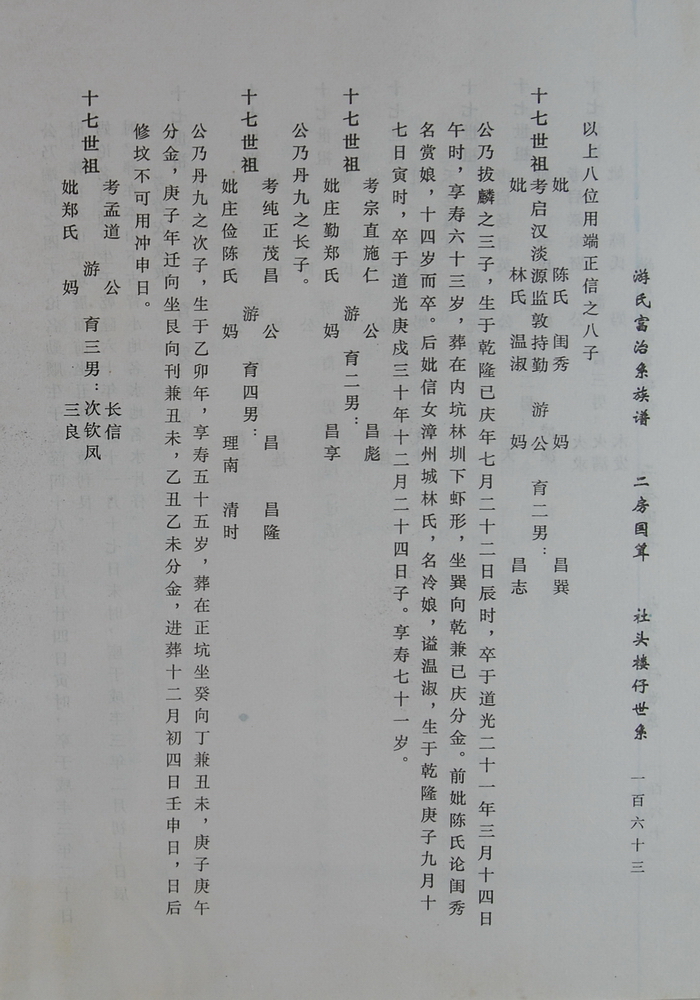 游氏富治系族谱 二房国笋 社头楼仔世系 一百六十三
以上八位用端正信之八子
妣 陈氏 闺秀 妈 昌巽
十七世祖考启汉淡源监敦持勤 游公 育二男：
妣 林氏 温淑 妈 昌志
公乃拔麟之三子，生于乾隆已庆年七月二十二日辰时，卒于道光二十一年三月十四日
午时，享寿六十三岁，葬在内坑林圳下虾形，坐巽向乾兼已庆分金。前妣陈氏论闺秀
名赏娘，十四岁而卒。后妣信女漳州城林氏，名冷娘，谥温淑，生于乾隆庚子九月十
七日寅时，卒于道光庚戍三十年十二月二十四日子。享寿七十一岁。
考宗直施仁 公 昌彪
十七世祖 游 育二男：
妣庄勤郑氏 妈 昌享
公乃丹九之长子。
考纯正茂昌 公 昌 昌隆
十七世祖 游 育四男：
妣庄俭陈氏 妈 理南 清时
公乃丹九之次子，生于乙卯年，享寿五十五岁，葬在正坑坐癸向丁兼丑未，庚子庚午
分金，庚子年迁向坐艮向刊兼丑未，乙丑乙未分金，进葬十二月初四日壬申日，日后
修坟不可用冲申日。
考孟道 公 长信
十七世祖 游 育三男：次钦凤
妣郑氏 妈 三良